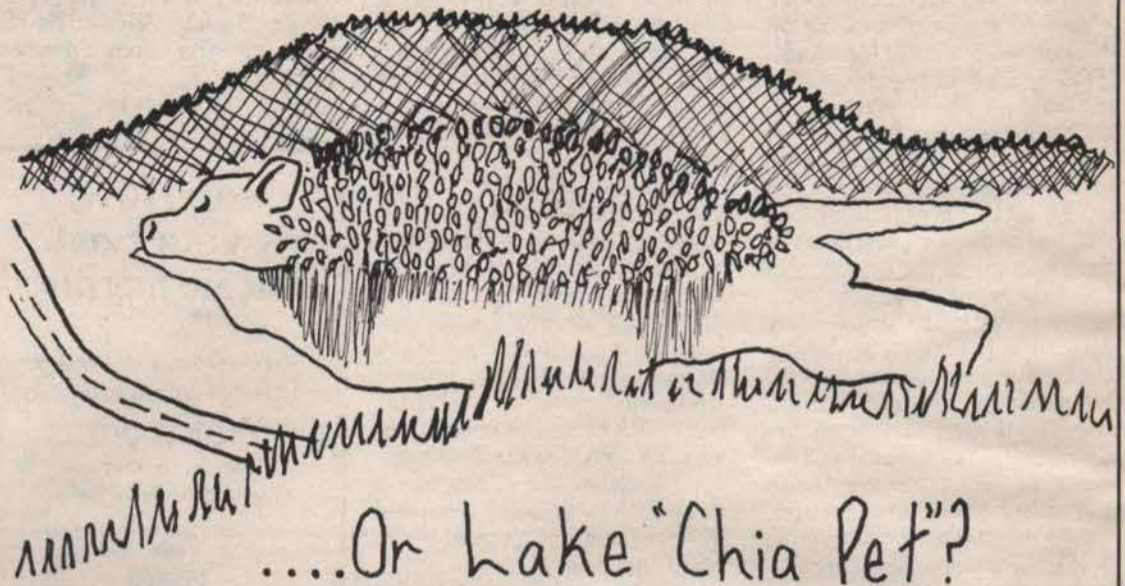 ....Or Lake "Chia Pet"?